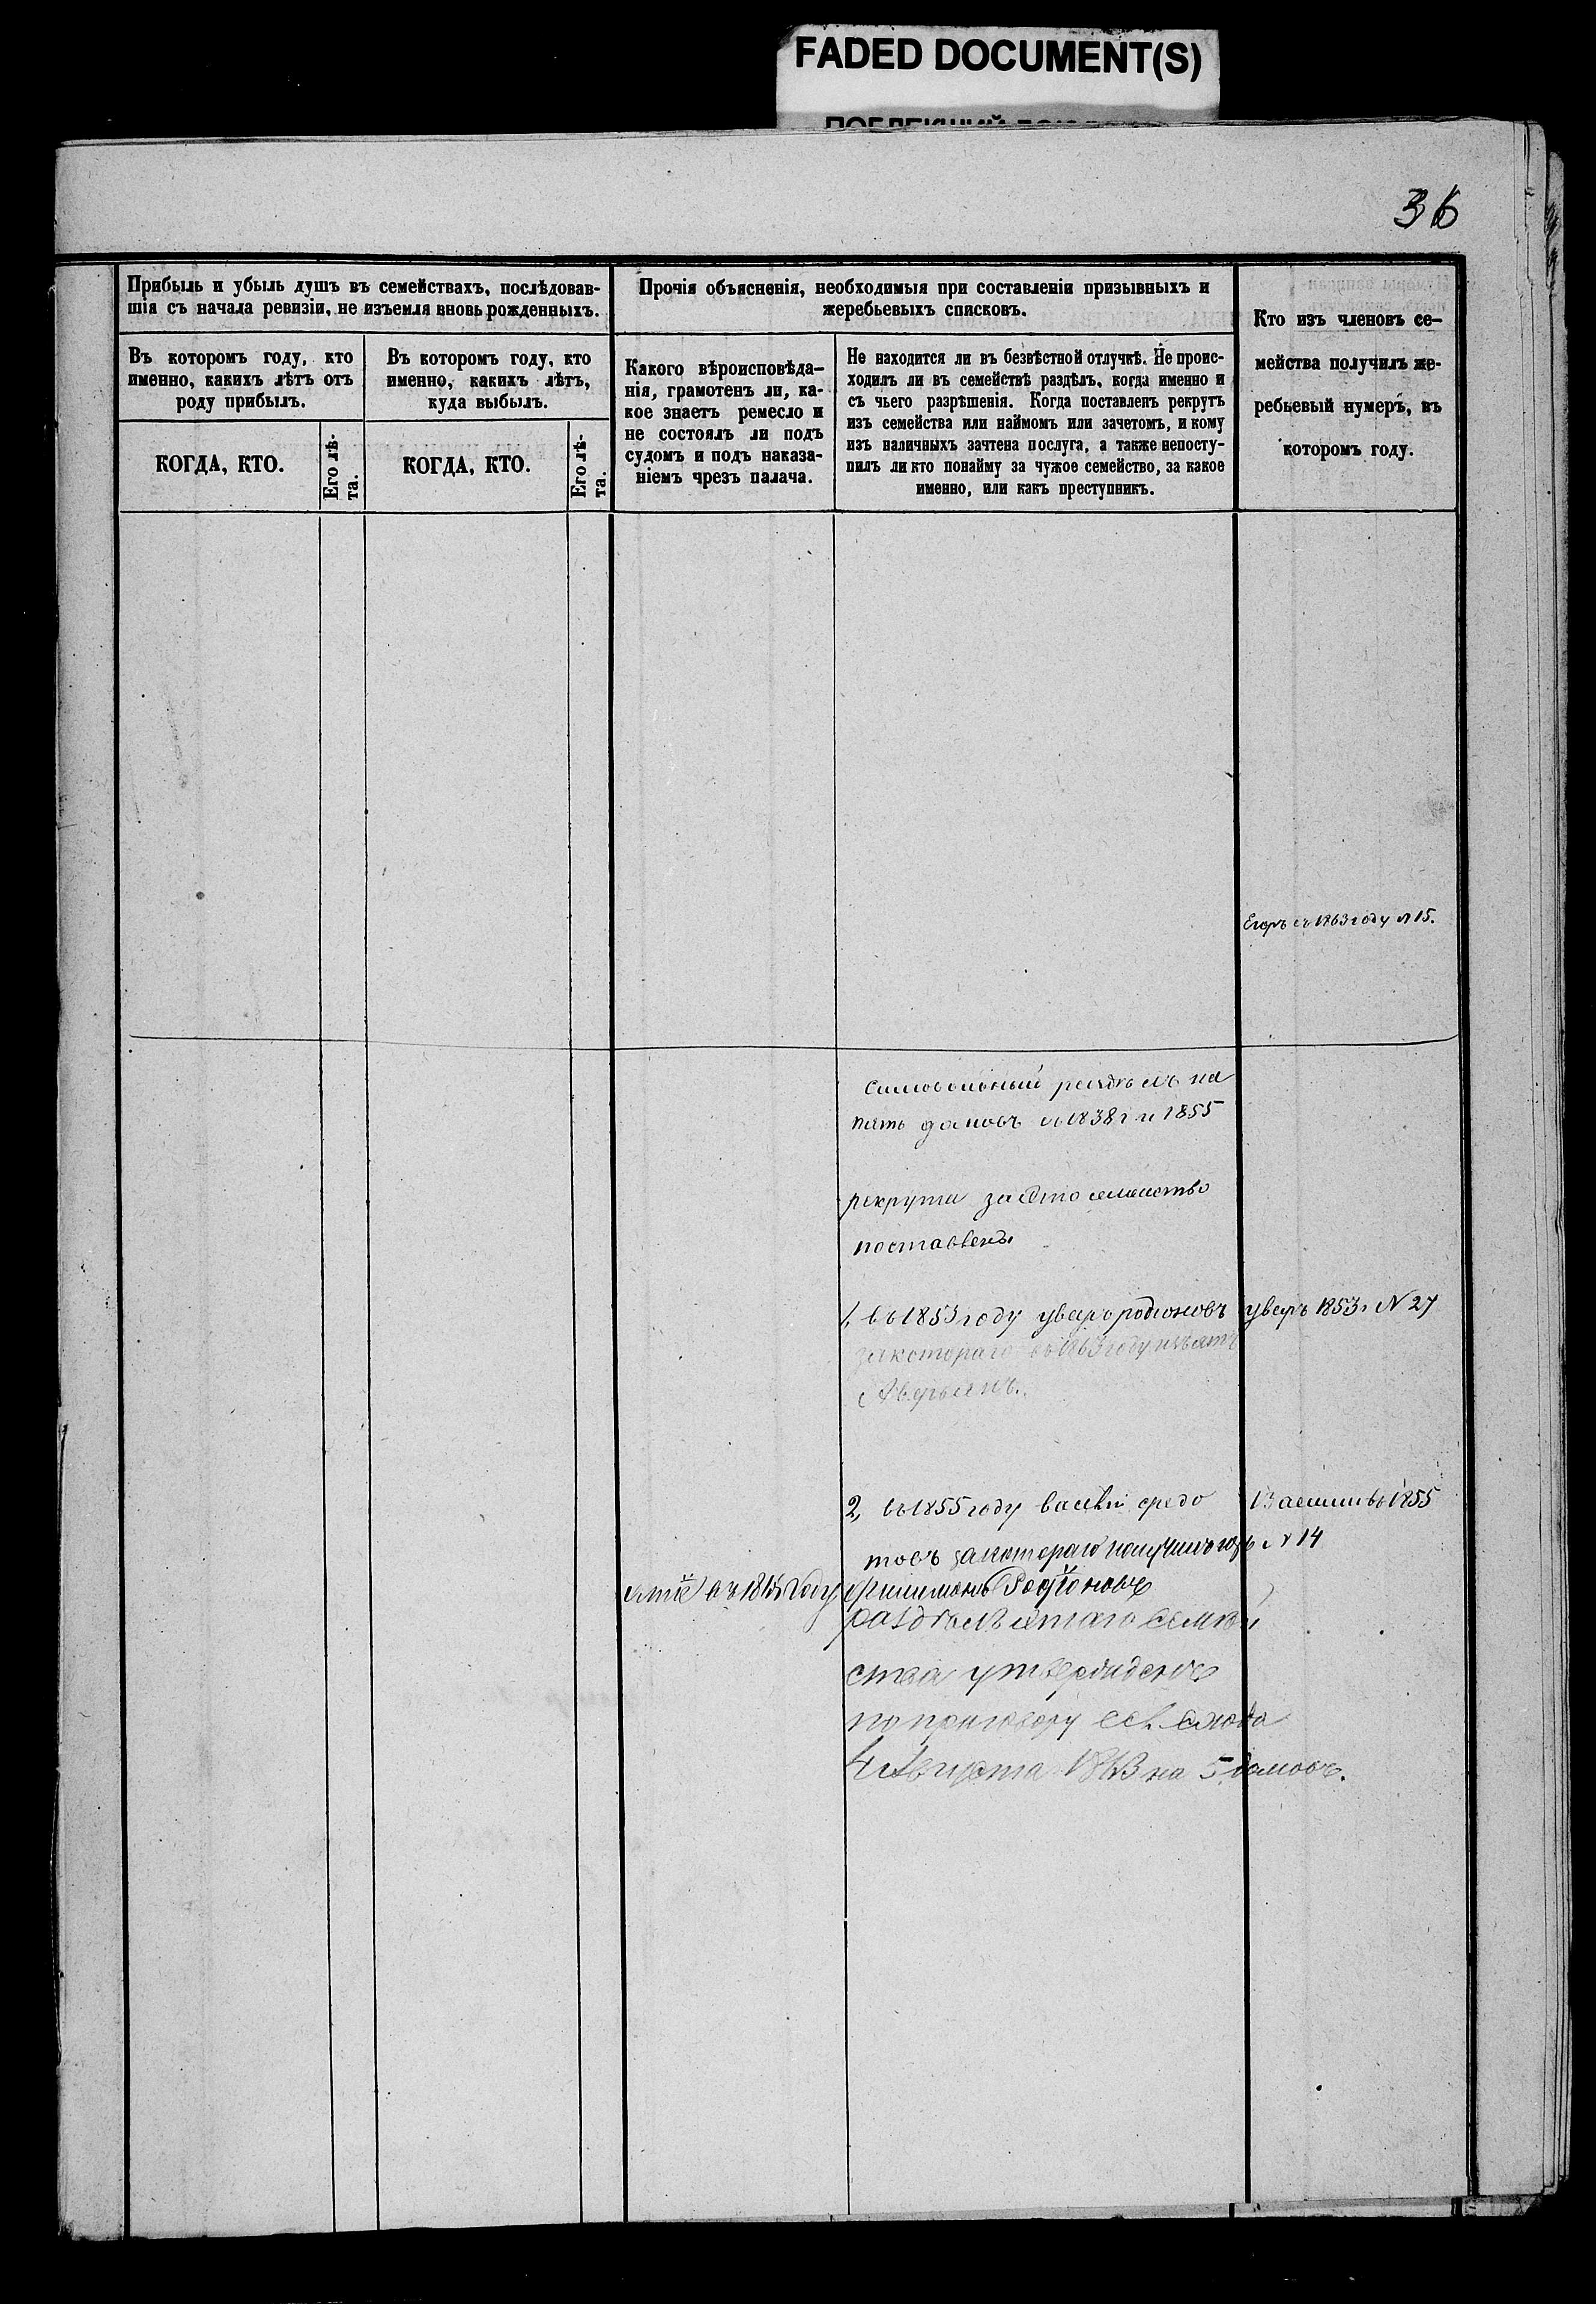 FADED DOCUMENT(S)
36
Прибыль и убыль душъ въ семействахъ, послѣдовав-
шія съ начала ревизіи, не изъемля вновь рожденныхъ.
Прочія объясненія, необходимыя при составленіи призывныхъ и
жеребьевыхъ списковъ.
Кто изъ членовъ се-
мейства получилъ же-
ребьевый нумеръ, въ
которомъ году.
Въ которомъ году, кто
именно, какихъ лѣтъ отъ
роду прибылъ.
Въ которомъ году, кто
именно, какихъ лѣтъ,
куда выбылъ.
Какого вѣроисповѣда-
нія, грамотенъ ли, ка-
кое знаетъ ремесло и
не состоялъ ли подъ
судомъ и подъ наказа-
ніемъ чрезъ палача.
Не находится ли въ безвѣстной отлучкѣ. Не проис-
ходилъ ли въ семействѣ раздѣлъ, когда именно и
съ чьего разрѣшенія. Когда поставленъ рекрутъ
изъ семейства или наймомъ или зачетомъ, и кому
изъ наличныхъ зачтена послуга, а также непосту-
пилъ ли кто понайму за чужое семейство, за какое
именно, или какъ преступникъ.
КОГДА, КТО.
Его лѣ-
та.
КОГДА, КТО.
Его лѣ-
та.
Егоръ въ 1863 году № 15.
Самовольный раздѣлъ на
пять домовъ въ 1838 г и 1855
рекрути за ето семейство
поставлены
1, въ 1853 году уваръ родионовъ
уваръ 1853 г N 27
закотораго въ 1863 году
Аверьянъ.
2, въ 1855 году васили федо
Васили въ 1855
товъ закотораго получилъ
N 14
въ году филимонъ Родіоновъ
раздѣлъ етаго семей
ства утверждено
по приговору схода
4 Августа на 5 домовъ.